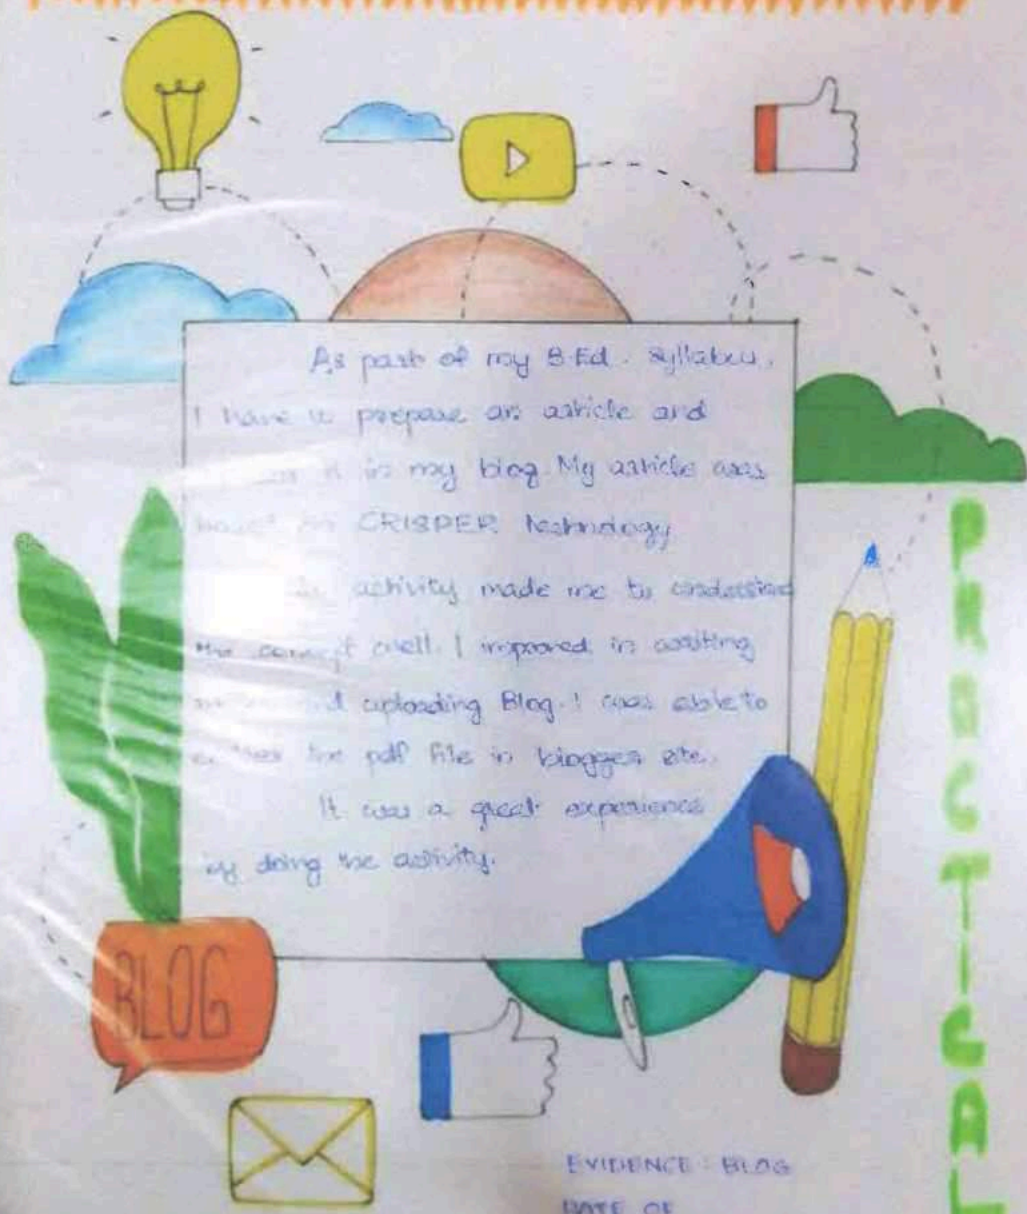 As part of my B.Ed. Syllabus,
I have to prepare an article and
it in my blog. My article was
based on CRISPER technology
activity made me to understand
the concept well. I improved in writing
and uploading Blog. I was able to
the pdf file in blogger site.
It was a great experience
by doing the activity.
BLOG
EVIDENCE : BLOG
DATE OF
PRACTICAL